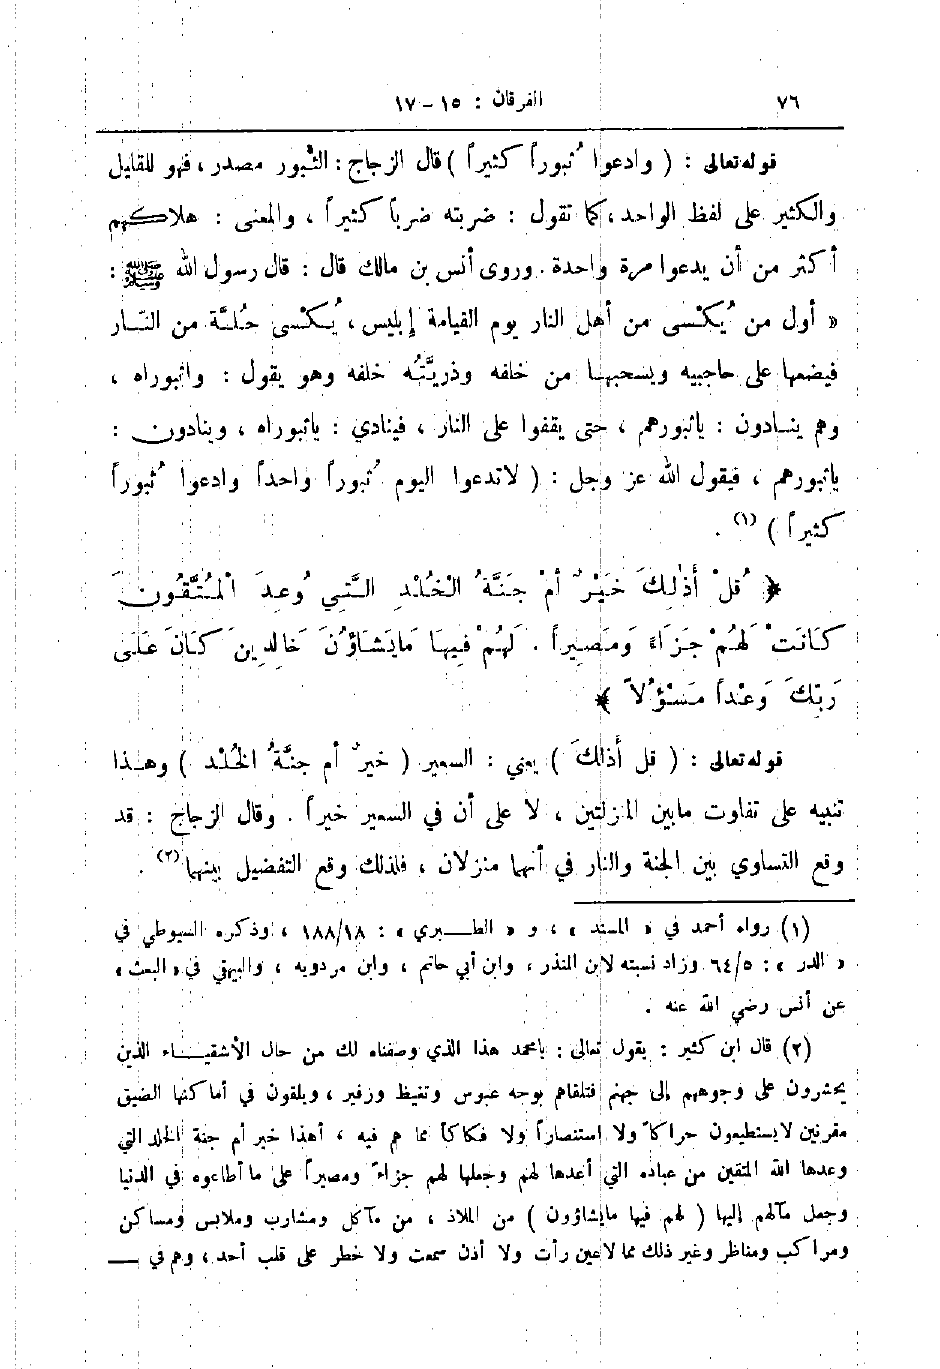 ٧٦ الفرقان : ١٥ – ١٧
قوله تعالى : ( وادعوا ثُبوراً كثيراً ) قال الزجاج : الثُّبور مصدر ، فهو للقليل
والكثير على لفظ الواحد ، كما تقول : ضربته ضرباً كثيراً ، والمعنى : هلاكهم
أكثر من أن يدعوا مرة واحدة . وروى أنس بن مالك قال : قال رسول الله ﷺ :
« أول من يُكْسى من أهل النار يوم القيامة إبليس ، يُكْسى حُلَّة من النَّار
فيضعها على حاجبيه ويسحبهـا من خلفه وذريَّتُه خلفه وهو يقول : واثبوراه ،
وهم ينـادون : ياثبورهم ، حتى يقفوا على النار ، فينادي : ياثبوراه ، وينادون :
ياثبورهم ، فيقول الله عز وجل : ( لاتدعوا اليوم ثُبوراً واحداً وادعوا ثُبوراً
كثيراً ) (١) .
﴿ قُلْ أَذٰلِكَ خَيْرٌ أَمْ جَنَّةُ الْخُلْدِ الَّتِي وُعِدَ الْمُتَّقُونَ
كَانَتْ لَهُمْ جَزَاءً وَمَصِيراً . لَهُمْ فِيهَا مَايَشَاؤُنَ خَالِدِينَ كَانَ عَلَى
رَبِّكَ وَعْداً مَسْؤُلاً ﴾
قوله تعالى : ( قل أَذلكَ ) يعني : السعير ( خيرٌ أم جنَّةُ الخُلْد ) وهـذا
تنبيه على تفاوت مابين المنزلتين ، لا على أن في السعير خيراً . وقال الزجاج : قد
وقع التساوي بين الجنة والنار في أنهما منزلان ، فلذلك وقع التفضيل بينهما (٢) .
(١) رواه أحمد في « المسند » ، و « الطـبري » : ١٨٨/١٨ ، وذكره السيوطي في
« الدر » : ٦٤/٥ وزاد نسبته لابن المنذر ، وابن أبي حاتم ، وابن مردويه ، والبيهقي في « البعث »
عن أنس رضي الله عنه .
(٢) قال ابن كثير : يقول تعالى : يامحمد هذا الذي وصفناه لك من حال الأشقيـاء الذين
يحشرون على وجوههم إلى جهنم فتلقاهم بوجه عبوس وتغيظ وزفير ، ويلقون في أماكنها الضيق
مقرنين لايستطيعون حراكاً ولا استنصاراً ولا فكاكاً مما هم فيه ، أهذا خير أم جنة الخلد التي
وعدها الله المتقين من عباده التي أعدها لهم وجعلها لهم جزاءً ومصيراً على ما أطاعوه في الدنيا
وجعل مآلهم إليها ( لهم فيها مايشاؤون ) من الملاذ ، من مآكل ومشارب وملابس ومساكن
ومراكب ومناظر وغير ذلك مما لاعين رأت ولا أذن سمعت ولا خطر على قلب أحد ، وهم في —